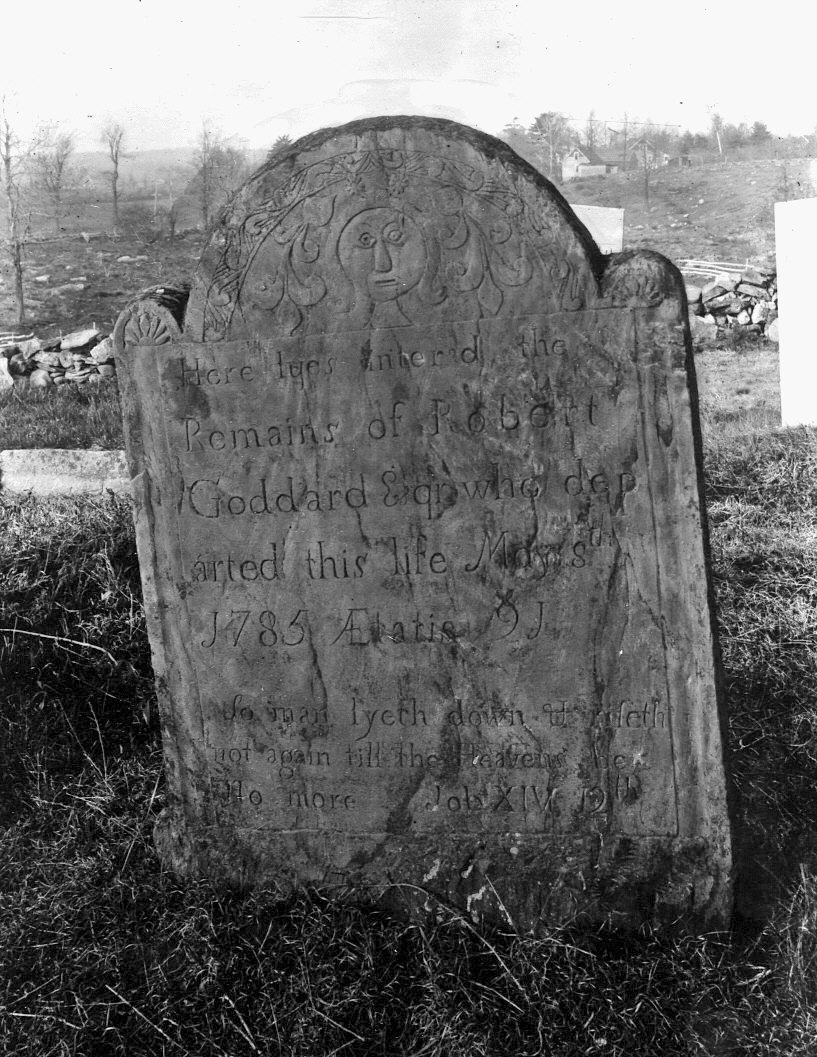 Here lyes inter'd the
Remains of Robert
Goddard Esqr who dep
arted this life May 8th
1785 Ætatis 91
So man lyeth down & riseth
not again till the Heavens be
No more Job XIV 12th